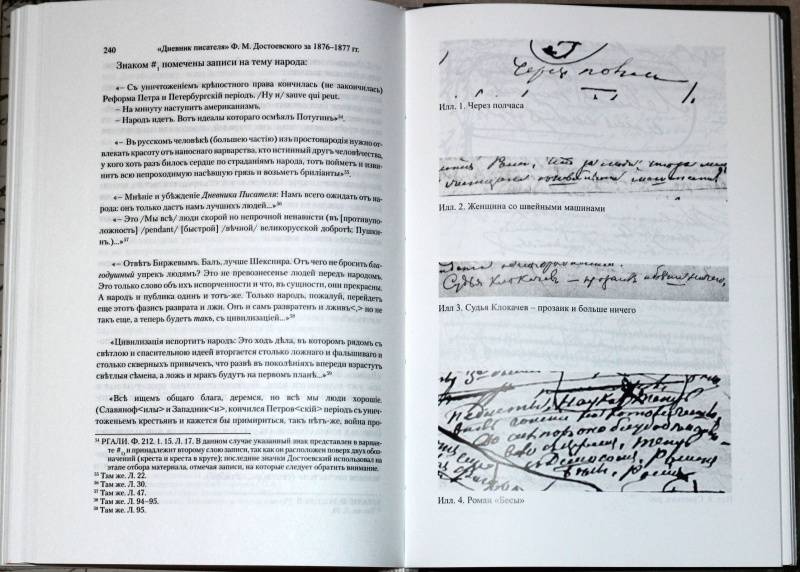 240
«Дневник писателя» Ф. М. Достоевского за 1876–1877 гг.
Знаком #₁ помечены записи на тему народа:
«– Съ уничтоженіемъ крѣпостного права кончилась (не закончилась)
Реформа Петра и Петербургскій періодъ. /Ну и/ sauve qui peut.
– На минуту наступитъ американизмъ.
– Народъ идетъ. Вотъ идеалы котораго осмѣялъ Потугинъ»³⁴.
«– Въ русскомъ человѣкѣ (большею частію) изъ простонародія нужно от-
влекать красоту отъ наноснаго варварства, кто истинный другъ человѣчества,
у кого хоть разъ билось сердце по страданіямъ народа, тотъ пойметъ и изви-
нитъ всю непроходимую насѣвшую грязь и возьметъ бриліанты»³⁵.
«– Мнѣніе и убѣжденіе Дневника Писателя: Намъ всего ожидать отъ на-
рода: онъ только дастъ намъ лучшихъ людей...»³⁶
«– Это /Мы всѣ/ люди скорой но непрочной ненависти (въ [противупо-
ложность] /pendant/ [быстрой] /вѣчной/ великорусской добротѣ; Пушки-
нъ.)...»³⁷
«– Отвѣтъ Биржевымъ. Балъ, лучше Шекспира. Отъ чего не бросить благо-
душный упрекъ людямъ? Это не превознесенье людей передъ народомъ.
Это только слово объ ихъ испорченности и что, въ сущности, они прекрасны.
А народъ и публика одинъ и тотъ-же. Только народъ, пожалуй, перейдетъ
еще этотъ фазисъ разврата и лжи. Онъ и самъ развратенъ и лживъ<,> но не
такъ еще, а теперь будетъ такъ, съ цивилизаціей...»³⁸
«Цивилизація испортитъ народъ: Это ходъ дѣла, въ которомъ рядомъ съ
свѣтлою и спасительною идеей вторгается столько ложнаго и фальшиваго и
столько скверныхъ привычекъ, что развѣ въ поколѣніяхъ впереди взрастутъ
свѣтлыя сѣмена, а ложь и мракъ будутъ на первомъ планѣ...»³⁹
«Всѣ ищемъ общаго блага, деремся, но всѣ мы люди хорошіе.
(Славяноф<илы> и Западник<и>, кончился Петров<скій> періодъ съ уничто-
женьемъ крестьянъ и кажется бы примириться, такъ нѣтъ же, война про-
³⁴ РГАЛИ. Ф. 212. 1. 15. Л. 17. В данном случае указанный знак представлен в вариан-
те #₁₃ и принадлежит второму слою записи, так как он расположен поверх двух обоз-
начений (креста и креста в круге); последние значки Достоевский использовал на
этапе отбора материала, отмечая записи, на которые следует обратить внимание.
³⁵ Там же. Л. 22.
³⁶ Там же. Л. 30.
³⁷ Там же. Л. 47.
³⁸ Там же. Л. 94–95.
³⁹ Там же. Л. 95.
Через полчаса
Илл. 1. Через полчаса
Илл. 2. Женщина со швейными машинами
Судья Клокачев – прозаик и больше ничего.
Илл 3. Судья Клокачев – прозаик и больше ничего
Илл. 4. Роман «Бесы»